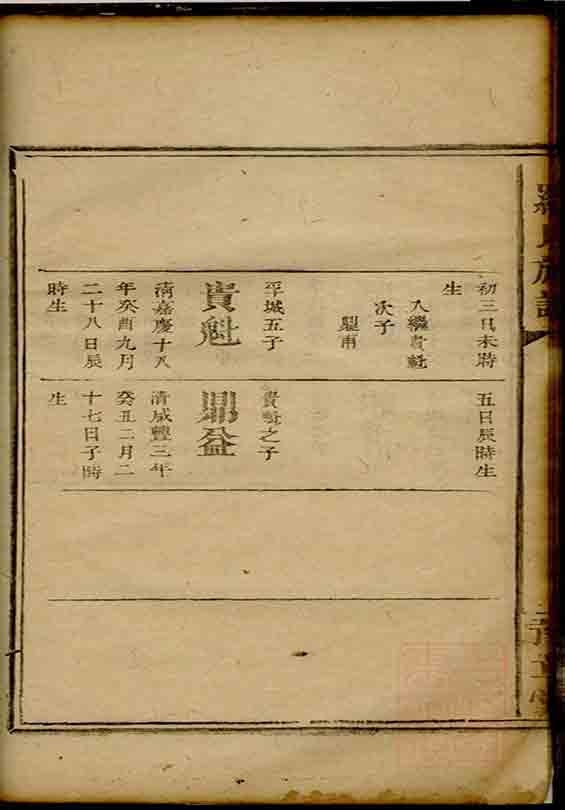 羅氏族譜
初三日未時
生
入繼貴
次子
平城五子
貴魁
清嘉慶十八
年癸酉九月
二十八日辰
時生
五日辰時生
貴
之子
鼎益
清咸豐三年
癸丑二月二
十七日子時
生